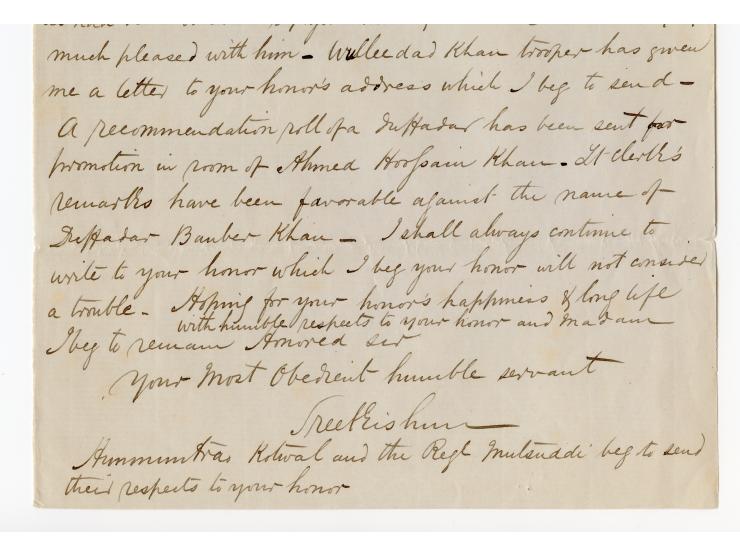 much pleased with him – Wulleedad Khan trooper has given
me a letter to your honor's address which I beg to send –
A recommendation roll of a Duffadar has been sent for
promotion in room of Ahmed Hoossain Khan – Lt Clerk's
remarks have been favorable against the name of
Duffadar Bauber Khan – I shall always continue to
write to your honor which I beg your honor will not consider
a trouble – Hoping for your honor's happiness & long life
with humble respects to your honor and Madam
I beg to remain Honored sir
Your Most Obedient humble servant
Sreekishun
Hunmuntrao Kotwal and the Regl Mutsuddi beg to send
their respects to your honor